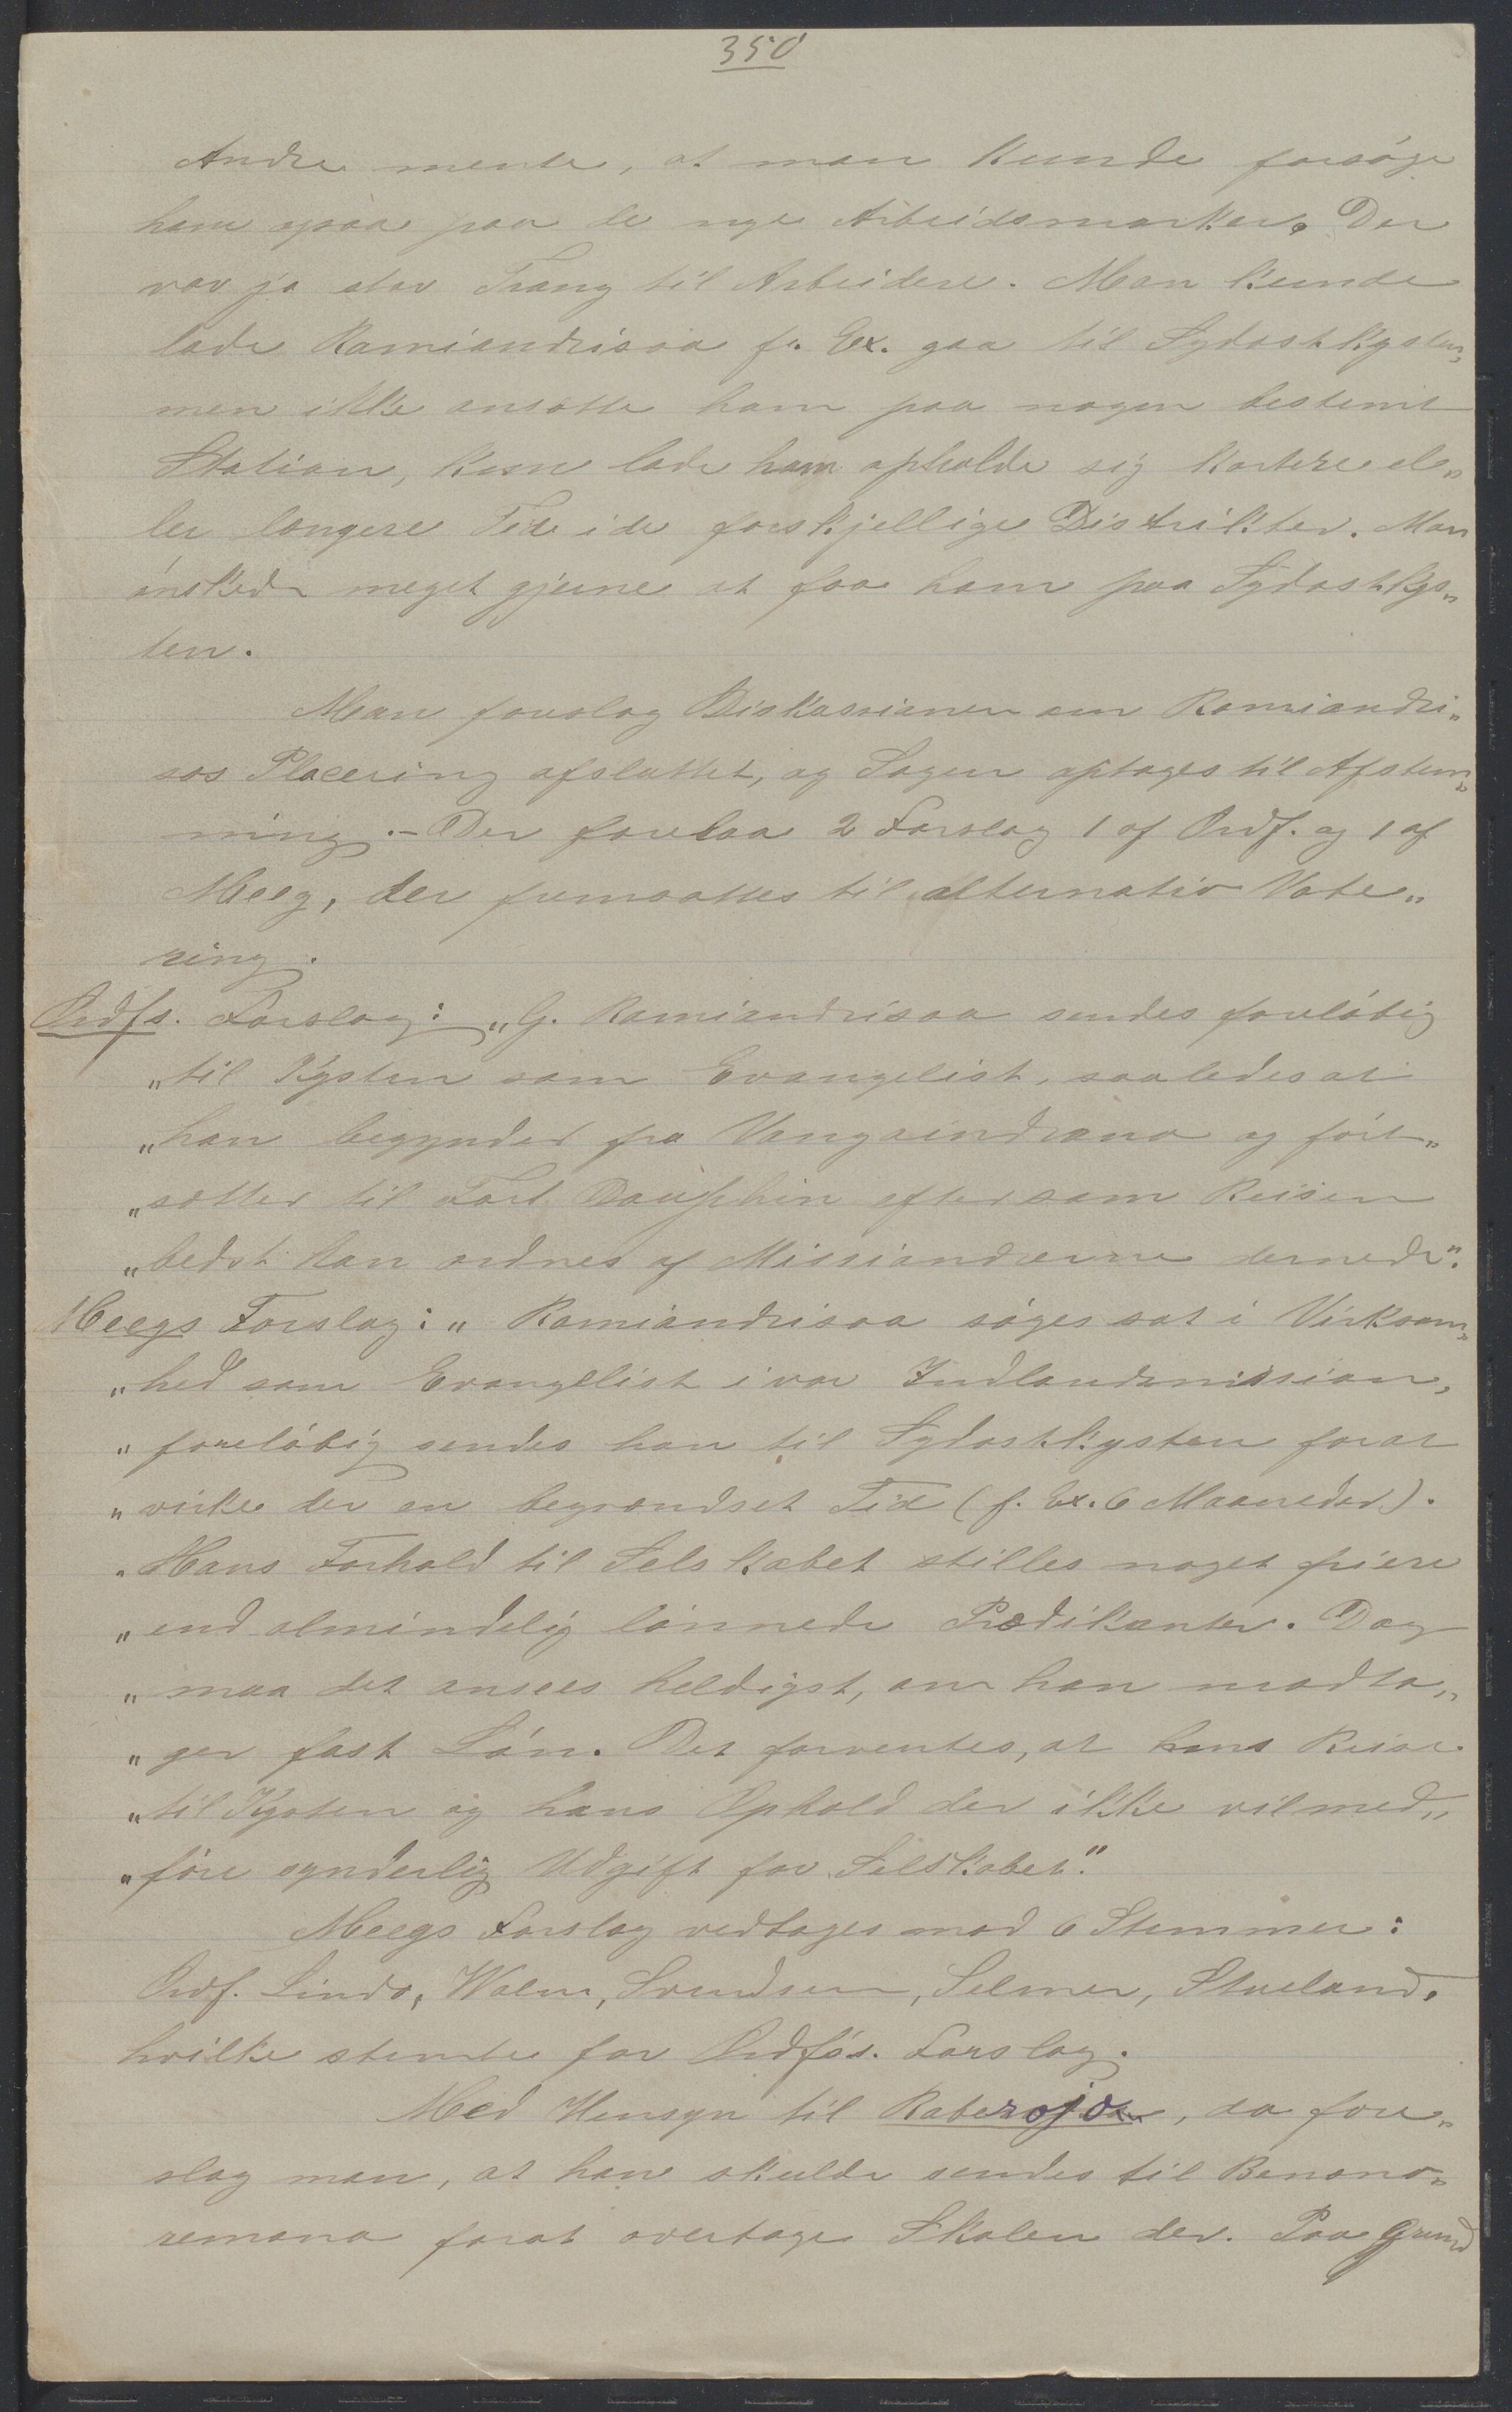 350
Andre mente, at man kunde forsøge
ham ogsaa paa de nye Arbeidsmarker. Der
var jo stor Trang til Arbeidere. Man kunde
lade Ramiandrisoa f. Ex. gaa til Sydostkysten,
men ikke ansætte ham paa nogen bestemt
Station, kun lade ham opholde sig kortere el„
ler længere Tid i de forskjellige Distrikter. Man
ønskede meget gjerne at faa ham paa Sydostkys„
ten.
Man foreslog Diskussionen om Ramiandri„
sos Placering afsluttet, og Sagen optages til Afstem„
ning. – Der forelaa 2 Forslag 1 af Ordf. og 1 af
Meeg, der fremsattes til alternativ Vote„
ring.
Ordfs. Forslag: „G. Ramiandrisoa sendes foreløbig
„til Kysten som Evangelist, saaledes at
„han begynder fra Vangaindrano og fort„
„sætter til Fort Dauphin eftersom Reisen
„bedst kan ordnes af Missionærerne dernede".
Meegs Forslag: „Ramiandrisoa søges sat i Virksom„
„hed som Evangelist i vor Indlandsmission,
„foreløbig sendes han til Sydostkysten forat
„virke der en begrændset Tid (f. Ex. 6 Maaneder).
„Hans Forhold til Selskabet stilles noget friere
„end almindelig lønnede Prædikanter. Dog
„maa det ansees heldigst, om han modta„
„ger fast Løn. Det forventes, at hans Reise
„til Kysten og hans Ophold der ikke vil med„
„føre synderlig Udgift for Selskabet."
Meegs Forslag vedtages mod 6 Stemmer:
Ordf. Lindo, Walen, Svendsen, Selmer, Stueland,
hvilke stemte for Ordføs. Forslag.
Med Hensyn til , da fore„
slog man, at han skulde sendes til Benano„
remana forat overtage Skolen der. Paa Grund